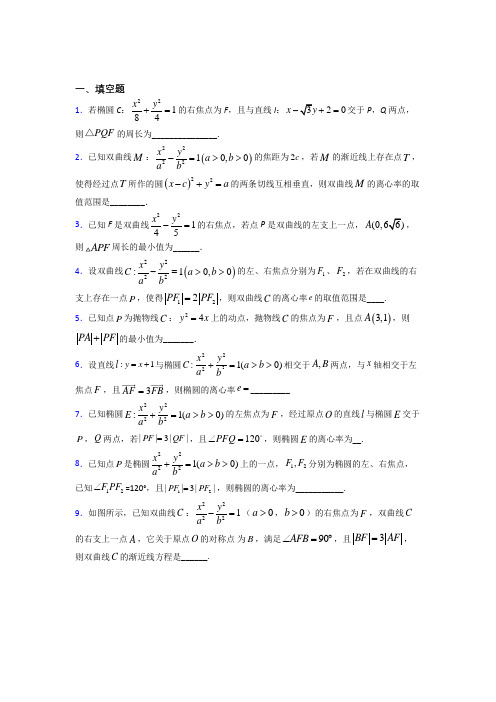 一、填空题
1．若椭圆 C：x²/8 + y²/4 = 1 的右焦点为 F，且与直线 l：x − √3y + 2 = 0 交于 P，Q 两点，
则 △PQF 的周长为_______________.
2．已知双曲线 M：x²/a² − y²/b² = 1(a > 0, b > 0) 的焦距为 2c，若 M 的渐近线上存在点 T，
使得经过点 T 所作的圆 (x − c)² + y² = a 的两条切线互相垂直，则双曲线 M 的离心率的取
值范围是________.
3．已知 F 是双曲线 x²/4 − y²/5 = 1 的右焦点，若点 P 是双曲线的左支上一点，A(0, 6√6)，
则 △APF 周长的最小值为______.
4．设双曲线 C: x²/a² − y²/b² = 1(a > 0, b > 0) 的左、右焦点分别为 F₁、F₂，若在双曲线的右
支上存在一点 P，使得 |PF₁| = 2|PF₂|，则双曲线 C 的离心率 e 的取值范围是____.
5．已知点 P 为抛物线 C：y² = 4x 上的动点，抛物线 C 的焦点为 F，且点 A(3,1)，则
|PA| + |PF| 的最小值为_______.
6．设直线 l : y = x + 1 与椭圆 C: x²/a² + y²/b² = 1(a > b > 0) 相交于 A, B 两点，与 x 轴相交于左
焦点 F，且 AF = 3FB，则椭圆的离心率 e = _________
7．已知椭圆 E: x²/a² + y²/b² = 1(a > b > 0) 的左焦点为 F，经过原点 O 的直线 l 与椭圆 E 交于
P，Q 两点，若 |PF| = 3|QF|，且 ∠PFQ = 120°，则椭圆 E 的离心率为__.
8．已知点 P 是椭圆 x²/a² + y²/b² = 1(a > b > 0) 上的一点，F₁, F₂ 分别为椭圆的左、右焦点，
已知 ∠F₁PF₂ =120°，且 |PF₁| = 3|PF₂|，则椭圆的离心率为___________.
9．如图所示，已知双曲线 C：x²/a² − y²/b² = 1（a > 0，b > 0）的右焦点为 F，双曲线 C
的右支上一点 A，它关于原点 O 的对称点 为 B，满足 ∠AFB = 90°，且 |BF| = 3|AF|，
则双曲线 C 的渐近线方程是______.